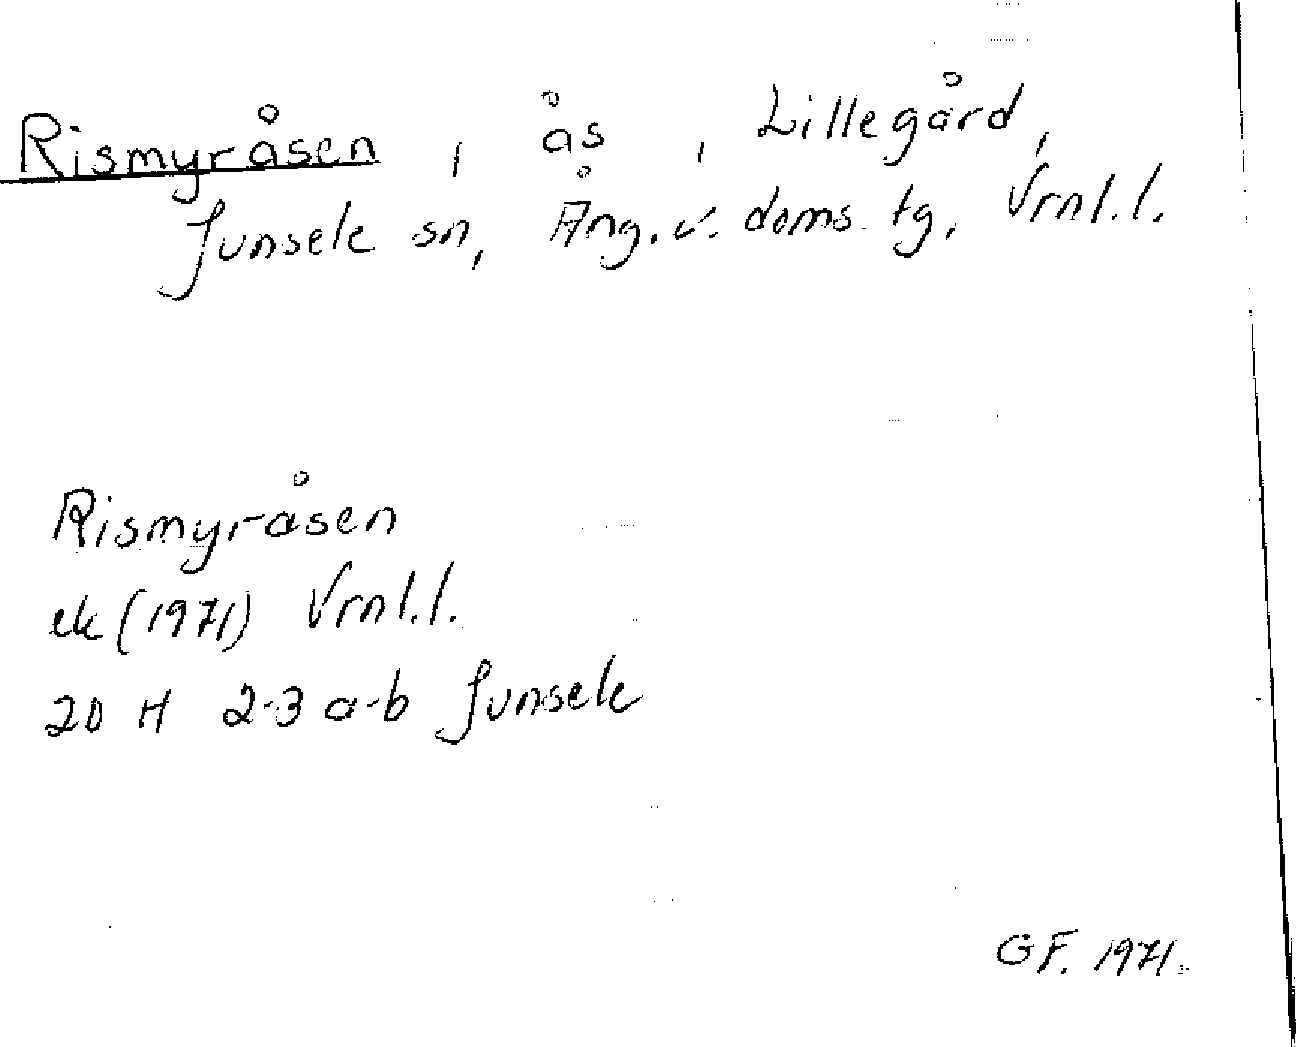 Rismyråsen, ås, Lillegård,
Junsele sn, Ång. v. doms. tg, Vrnl.l.
Rismyråsen
ek (1971) Vrnl.l.
20 H 2-3 a-b Junsele
GF. 1971.